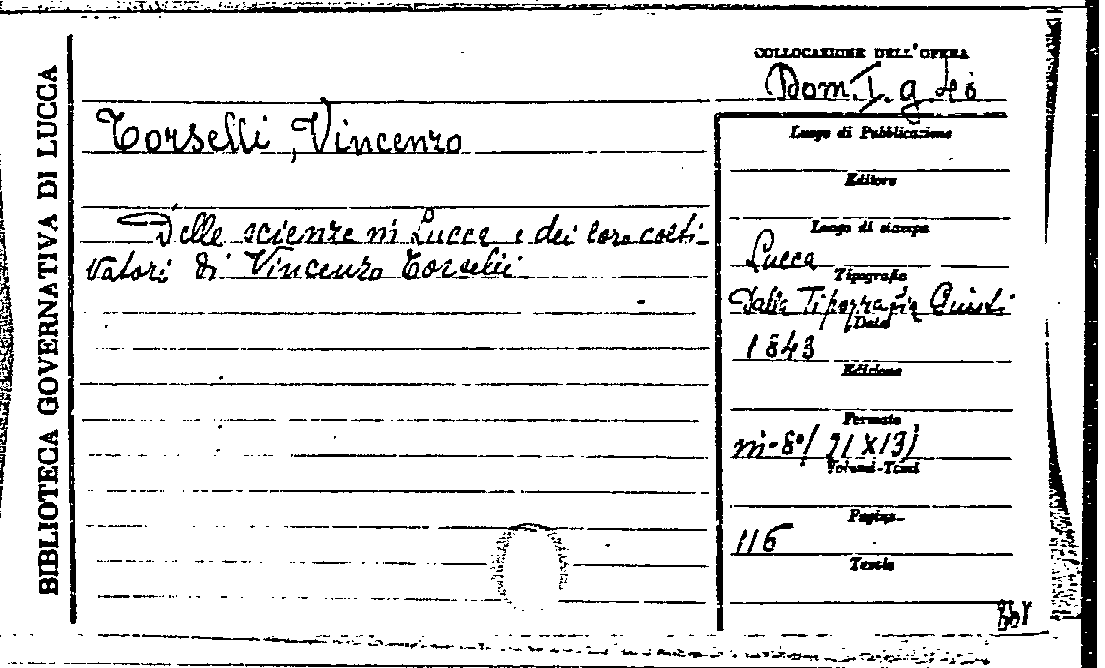 BIBLIOTECA GOVERNATIVA DI LUCCA
COLLOCAZIONE DELL'OPERA
Dom. I. g. 46
Torselli, Vincenzo
Delle scienze in Lucca e dei loro colti-
vatori di Vincenzo Torselli
Luogo di Pubblicazione
Editore
Luogo di stampa
Lucca
Tipografia
Dalla Tipografia Giusti
Data
1843
Edizione
Formato
in-8°( 21 x 13)
Volumi-Tomi
Pagine
116
Tavole